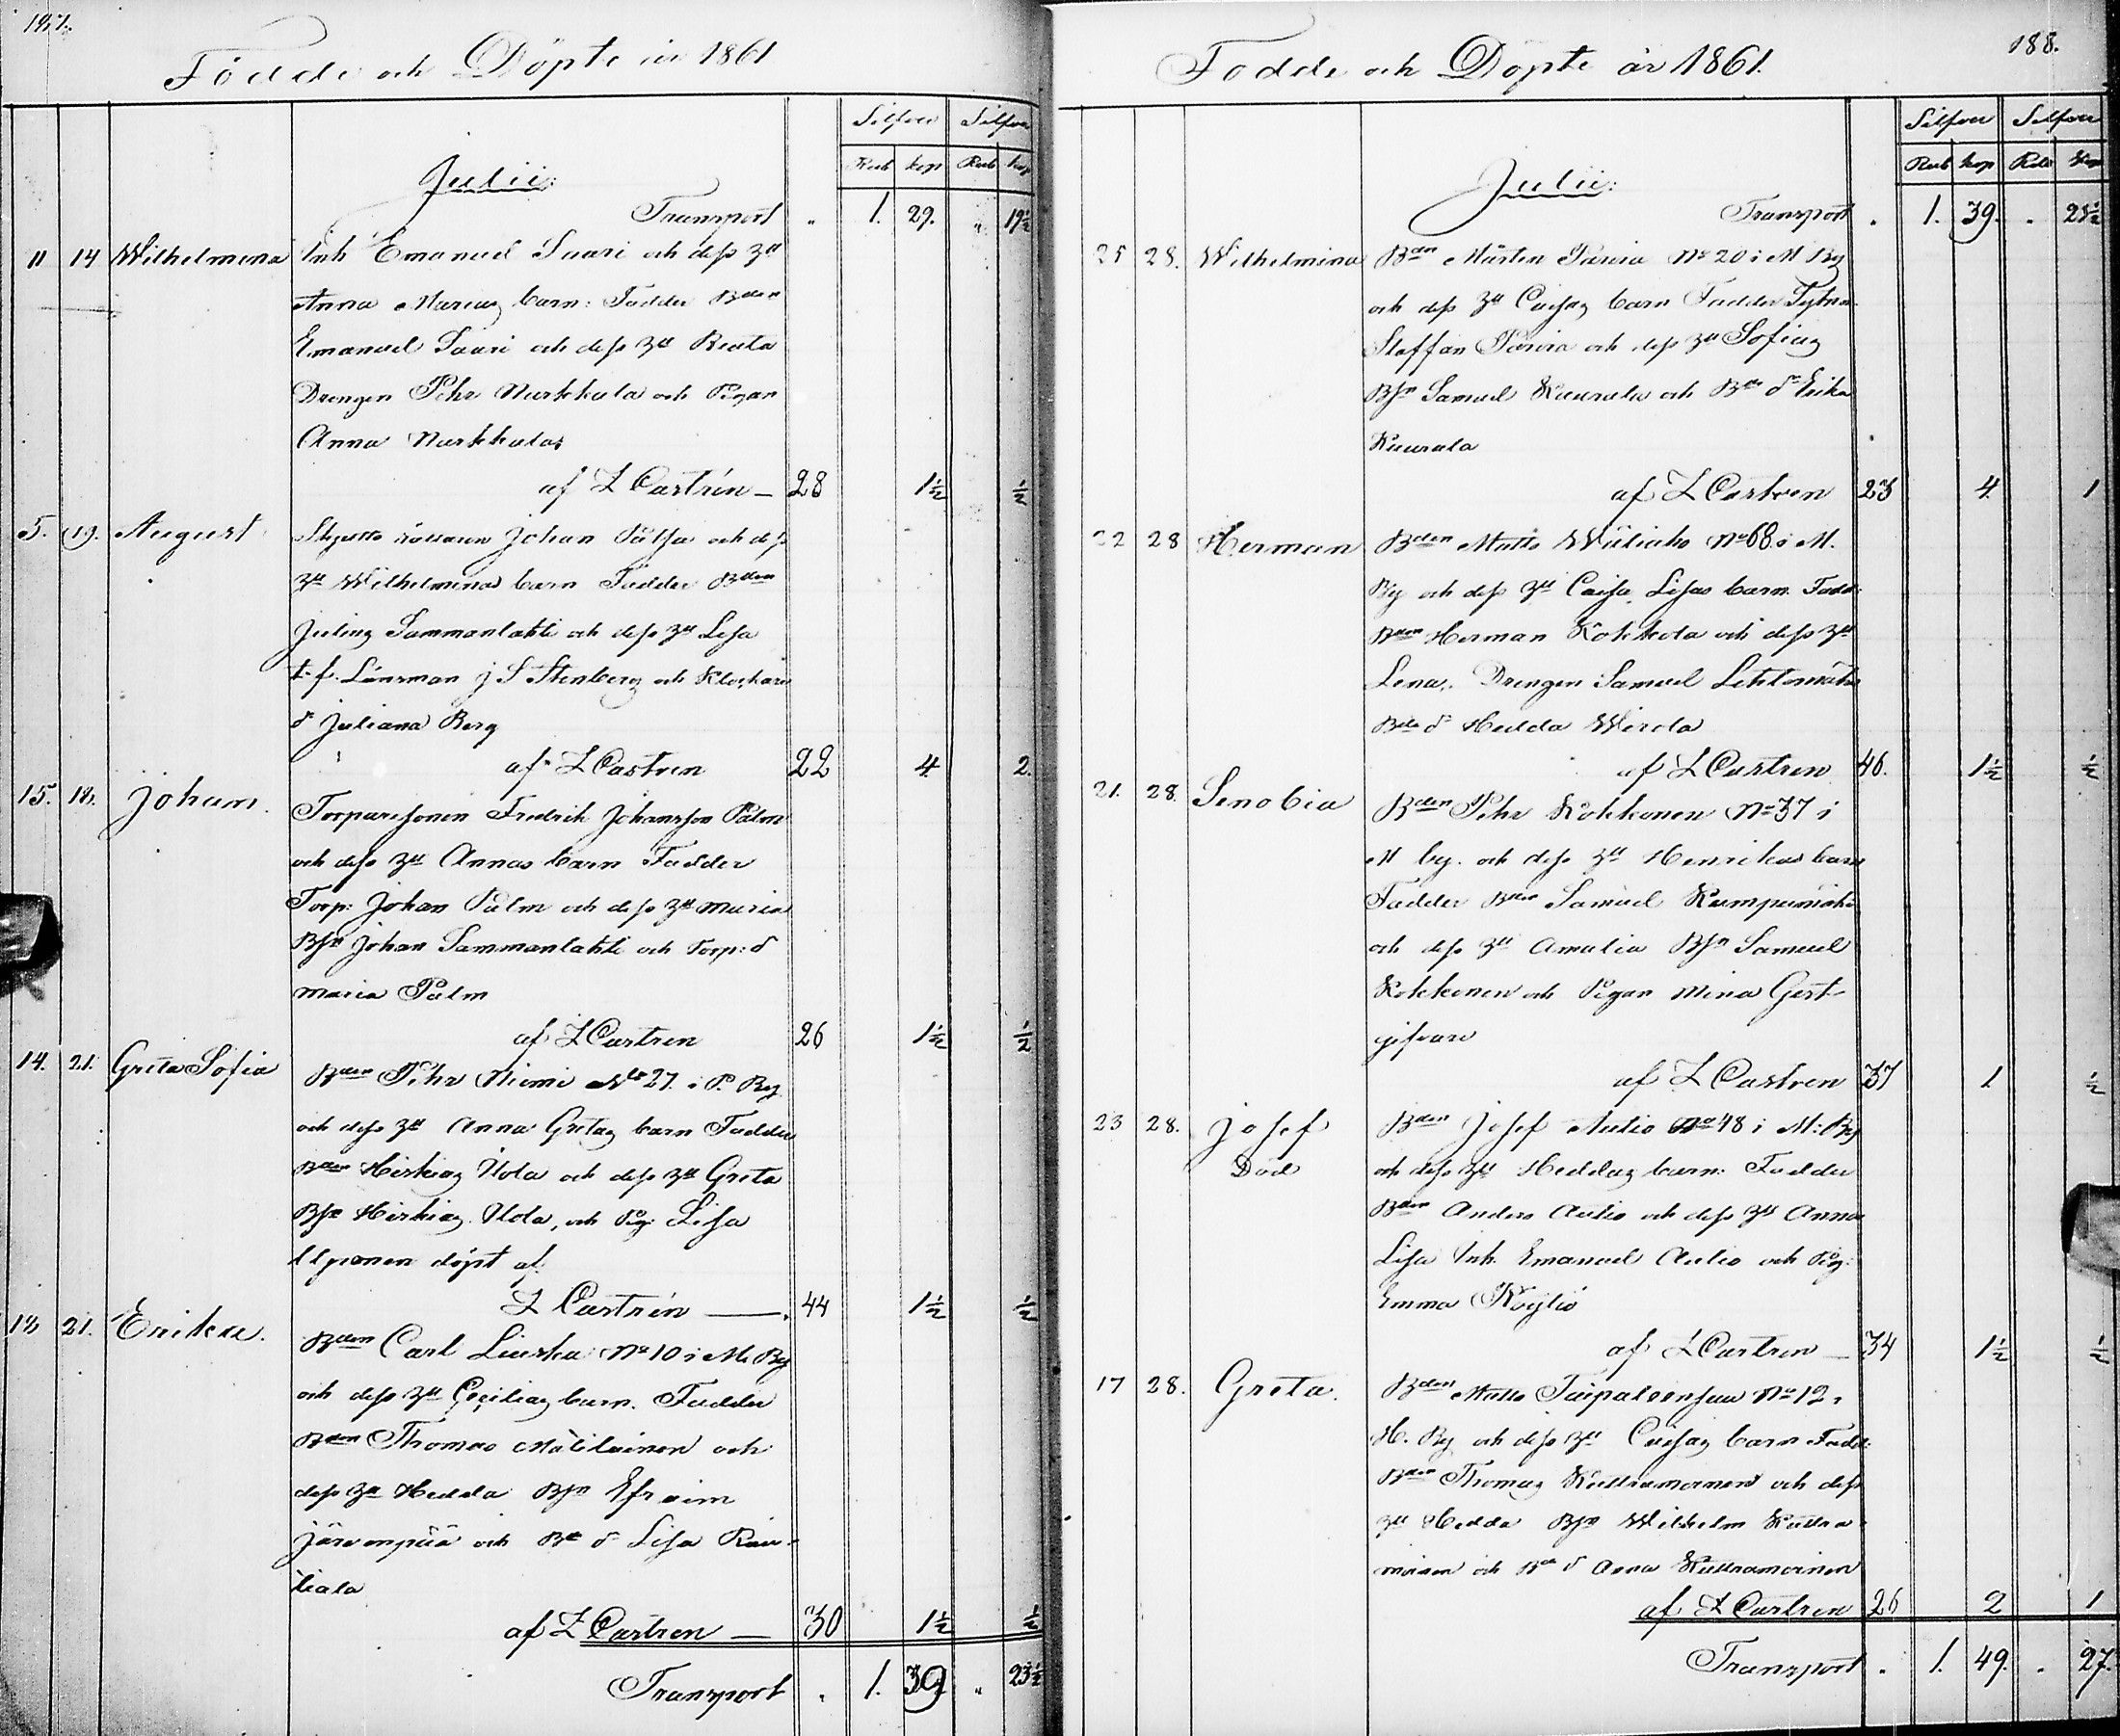 187.
Födde och Döpte år 1861
Silfver Silfver
Rub kop Rub kop
Julii:
Transport " 1. 29. " 19½
11 14 Wilhelmina Inh Emanuel Saari och dess hu
Anna Marias barn: Fadder Bden
Emanuel Saari och dess hu Beata
Drengen Pehr Nurkkala och Pigan
Anna Nurkkala
af Z Castrén — 28 1½ ½
5. 19. August Johan och dess
hu Wilhelminas barn Fadder Bden
Julius Sammanlahti och dess hu Lisa
t. f. Länsman J S Stenberg och Klockare
d Juliana Berg
af Z Castren 22 4 2.
15. 18. Johan. Torparesonen Fredrik Johansson Palm
och dess hu Annas barn Fadder
Torp: Johan Palm och dess hu Maria
Bsn Johan Sammanlahti och Torp: d
Maria Palm
af Z Castren 26 1½ ½
14. 21. Greta Sofia Bden Pehr Niemi No 27. i P. By
och dess hu Anna Gretas barn Fadder
Bden Hiskias Ilola och dess hu Greta
Bsn Hiskias Ilola, och Pig: Lisa
döpt af
Z Castrén — 44 1½ ½
18 21. Erika. Bden Carl Liuska No 10 i M. By
och dess hu Cecilias barn. Fadder
Bden Thomas Matilainen och
dess hu Hedda Bsn Efraim
Järvenpää och Be d Lisa Rau-
tiala
af Z Castren — 30 1½ ½
Transport " 1. 39 " 23½
188.
Födde och Döpte år 1861.
Silfver Silfver
Rub kop Rub kop
Julii:
Transport " 1. 39. " 23½
25 28. Wilhelmina Bden Mårten Parvia No 20 i M By
och dess hu Caisas barn Fadder
Staffan Parvia och dess hu Sofia
Bsn Samuel Kuurala och Bde d Erika
Kuurala
af Z Castren 23 4 1
22 28 Herman Bden Matts Wäliaho No 68 i M.
By och dess hu Caisa Lisas barn. Fadd:
Bden Herman Kokkola och dess hu
Lena. Drengen Samuel
Bde d Hedda Wirola
af Z Castren 46. 1½ ½
21. 28. Senobia Bden Pehr Kokkonen No 37 i
M by. och dess hu Henrikas barn
Fadder Bden Samuel Kumpumäki
och dess hu Amalia Bsn Samuel
Kokkonen och Pigan Mina Gest-
gifvare
af Z Castren 37 1 ½
23 28. Josef Bden Josef Aulio No 48 i M: By
Död och dess hu Heddas barn: Fadder
Bden Anders Aulio och dess hu Anna
Lisa Inh. Emanuel Aulio och Pig:
Emma Köyliö
af Z Castren — 34 1½ ½
17 28. Greta. Bden Matts Taipaleensuu No 12 i
H. By och dess hu Caisas barn Fadd:
Bden Thomas Kuttramoinen och dess
hu Hedda Bsn Wilhelm Kuttra-
moinen och Be d Anna Kuttramoinen
af Z Castren 26 2 1
Transport " 1. 49. " 27.